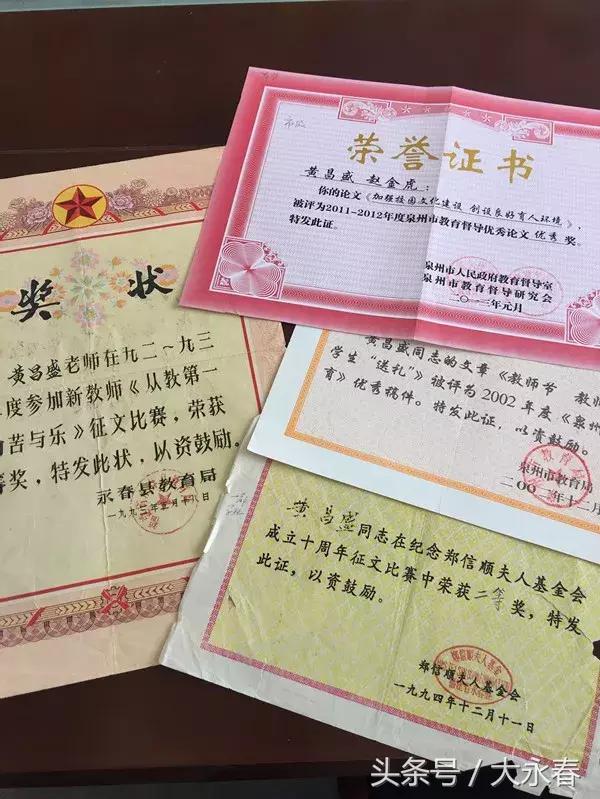 荣誉证书
黄昌盛 赵金虎：
你的论文《加强校园文化建设 创设良好育人环境》，
被评为2011-2012年度泉州市教育督导优秀论文 优秀 奖。
特发此证。
泉州市人民政府教育督导室
泉州市教育督导研究会
二〇一三年元月
奖状
黄昌盛老师在九二~九三
年度参加新教师《从教第一
苦与乐》征文比赛，荣获
等奖，特发此状，以资鼓励。
永春县教育局
黄昌盛同志的文章《教师节 教师
学生“送礼”》被评为2002年度《泉州
育》优秀稿件。特发此证，以资鼓励。
泉州市教育局
十二月
黄昌盛同志在纪念郑信顺夫人基金会
成立十周年征文比赛中荣获二等奖，特发
此证，以资鼓励。
郑信顺夫人基金会
一九九四年十二月十一日
头条号／大永春